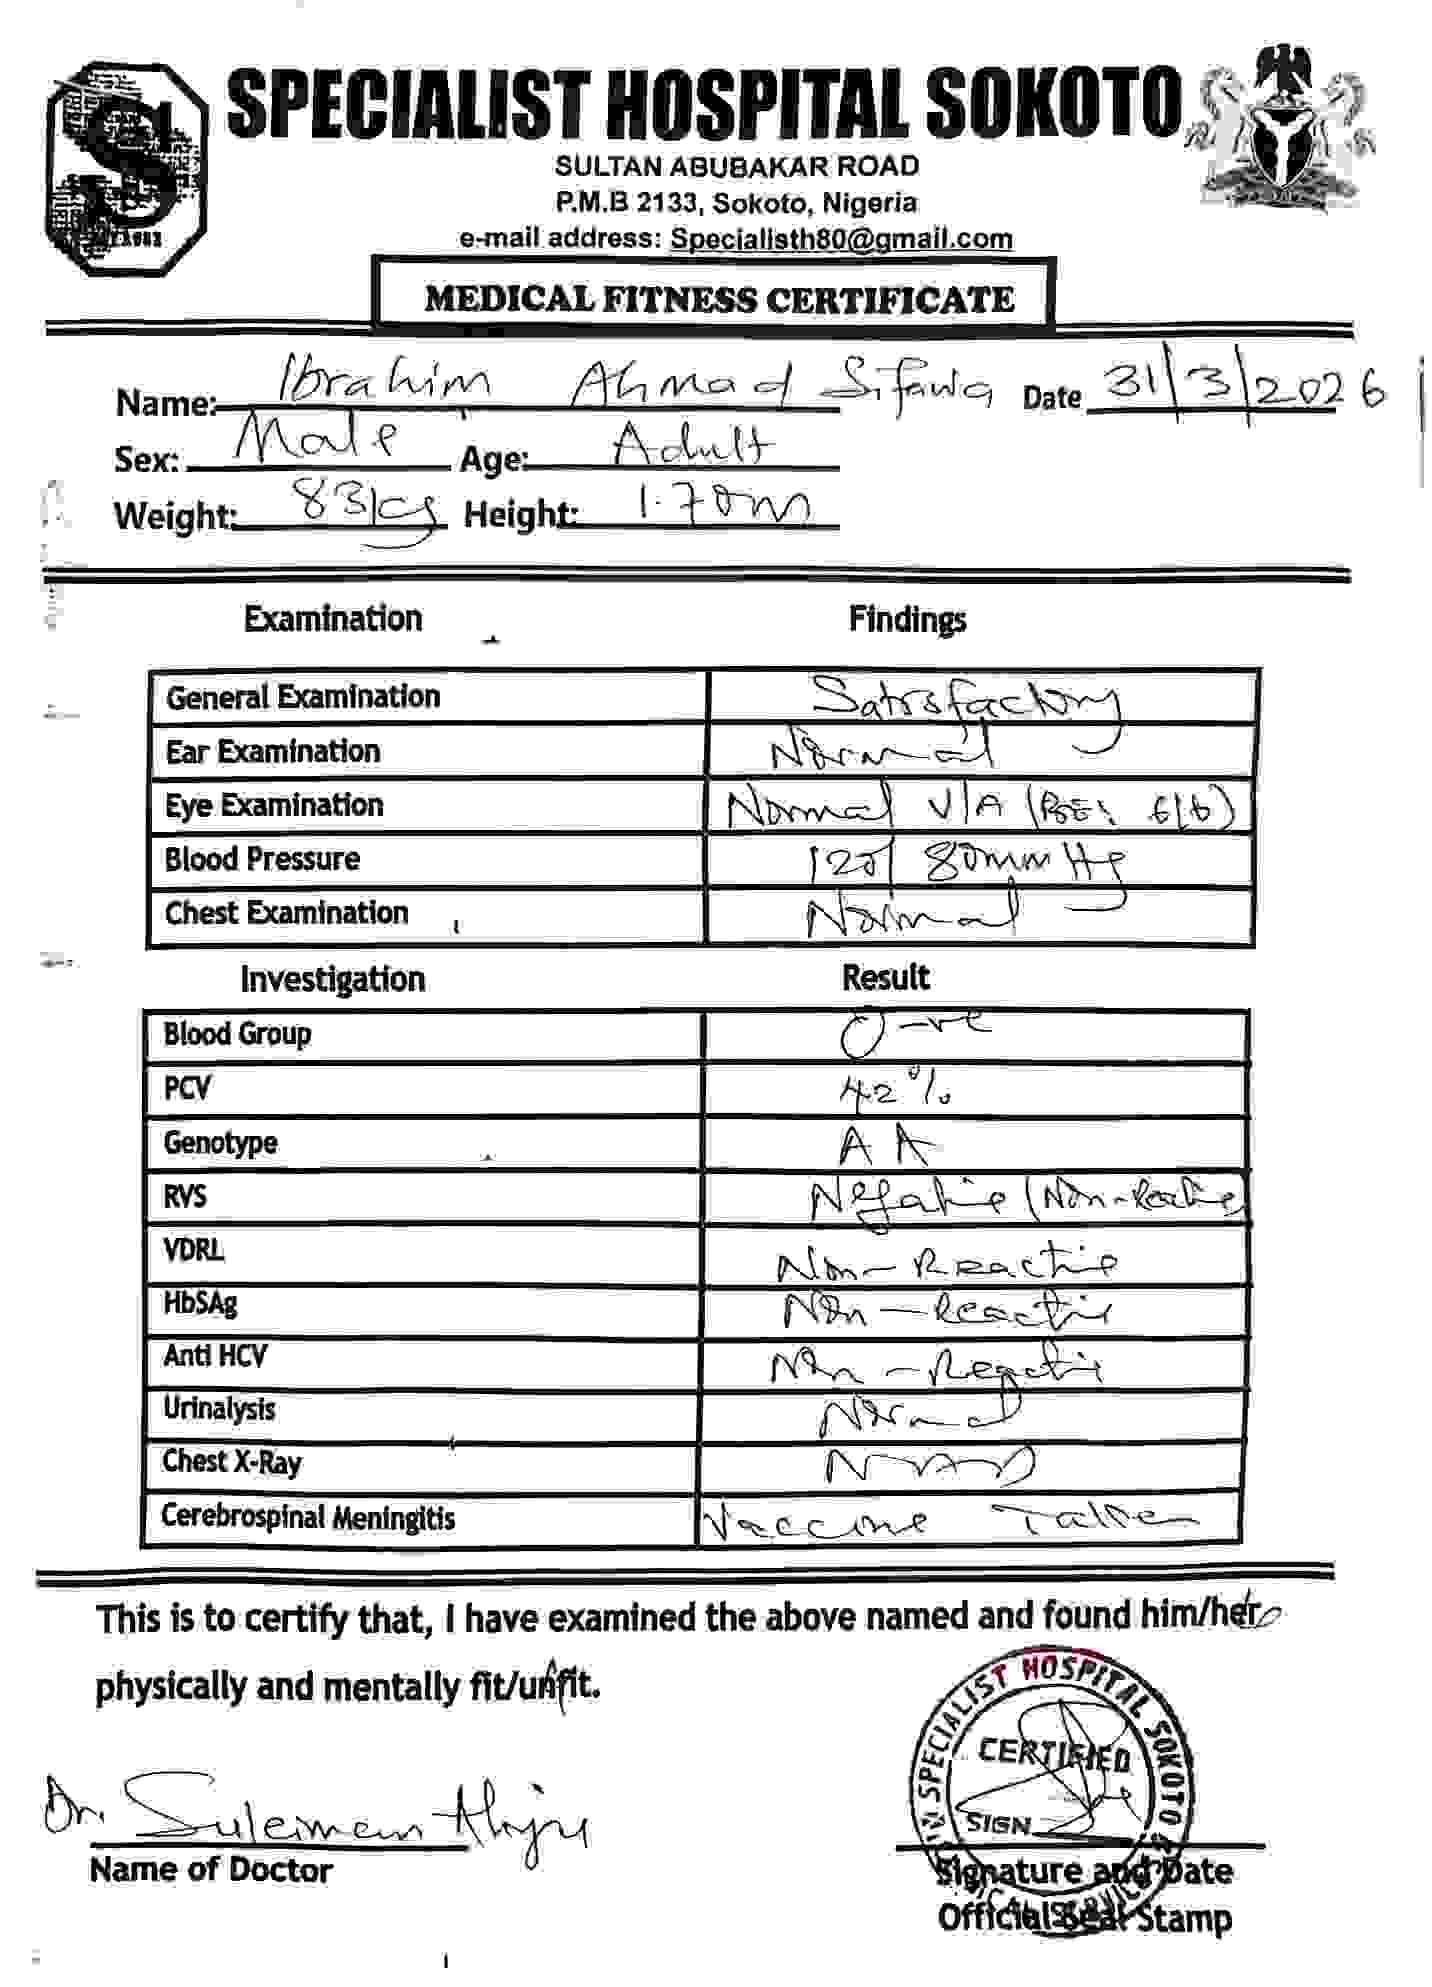 SPECIALIST HOSPITAL SOKOTO
SULTAN ABUBAKAR ROAD
P.M.B 2133, Sokoto, Nigeria
e-mail address: Specialisth80@gmail.com
MEDICAL FITNESS CERTIFICATE
Name: Ibrahim Ahmad Sifawa Date 31/3/2026
Sex: Male Age: Adult
Weight: 83kg Height: 1.70m
Examination Findings
General Examination Satisfactory
Ear Examination Normal
Eye Examination Normal V/A (BE: 6/6)
Blood Pressure 120/80mmHg
Chest Examination Normal
Investigation Result
Blood Group O-ve
PCV 42%
Genotype AA
RVS Negative (Non-Reactive
VDRL Non-Reactive
HbSAg Non-Reactive
Anti HCV Non-Reactive
Urinalysis Normal
Chest X-Ray NAD
Cerebrospinal Meningitis Vaccine Taken
This is to certify that, I have examined the above named and found him/her
physically and mentally fit/unfit.
SPECIALIST HOSPITAL SOKOTO
CERTIFIED
SIGN
Dr. Suleiman
Name of Doctor
Signature and Date
Official Seal Stamp